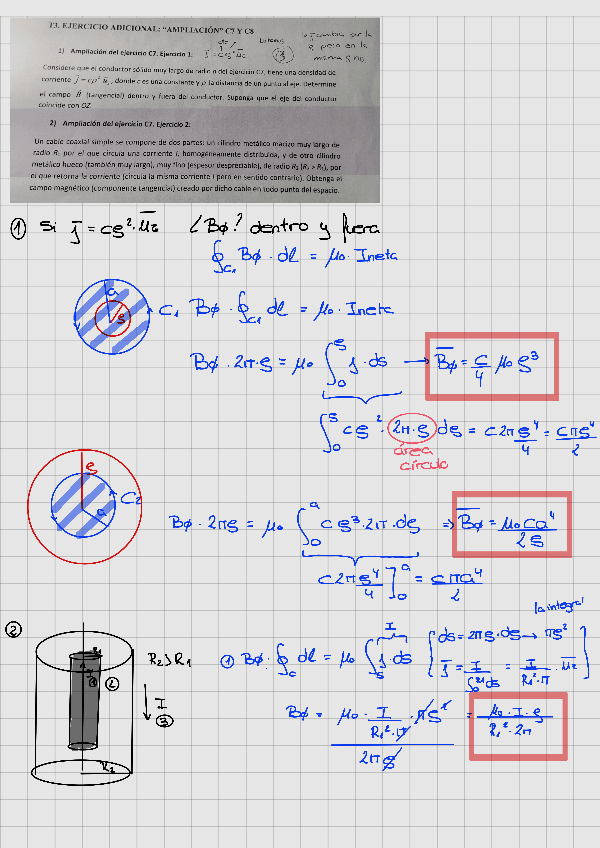 T3. EJERCICIO ADICIONAL: "AMPLIACIÓN" C7 Y C8
1) Ampliación del ejercicio C7. Ejercicio 1: J = cρ² u̅z
Considere que el conductor sólido muy largo de radio a del ejercicio C7, tiene una densidad de
corriente J = cρ² u̅z, donde c es una constante y ρ la distancia de un punto al eje. Determine
el campo H (tangencial) dentro y fuera del conductor. Suponga que el eje del conductor
coincide con OZ.
2) Ampliación del ejercicio C7. Ejercicio 2:
Un cable coaxial simple se compone de dos partes: un cilindro metálico macizo muy largo de
radio R₁ por el que circula una corriente I, homogéneamente distribuida, y de otro cilindro
metálico hueco (también muy largo), muy fino (espesor despreciable), de radio R₂ (R₂ > R₁), por
el que retorna la corriente (circula la misma corriente I pero en sentido contrario). Obtenga el
campo magnético (componente tangencial) creado por dicho cable en todo punto del espacio.
① Si J̅ = cρ² · u̅z ¿Bϕ? dentro y fuera
∮C₁ Bϕ · dl = μ₀ · Ineta
a ρ C₁ Bϕ · ∮C₁ dl = μ₀ · Ineta
Bϕ · 2π · ρ = μ₀ ∫₀^ρ J · ds → B̅ϕ = c/4 μ₀ ρ³
∫₀^ρ cρ² · 2π · ρ dρ = c2π ρ⁴/4 = cπρ⁴/2
área
círculo
ρ C₂ a
Bϕ · 2πρ = μ₀ ∫₀^a cρ³ · 2π · dρ ⇒ B̅ϕ = μ₀ca⁴/2ρ
c2πρ⁴/4 ]₀^a = cπa⁴/2
la integral
② R₂ > R₁ ① Bϕ · ∮c dl = μ₀ ∫s J · ds I [ ds = 2πρ · dρ → πρ²
① ② I ③ J̅ = I/∫₀^R₁ ds = I/R₁² · π · u̅z ]
Bϕ = μ₀ · I/R₁² · π · πρ² / 2πρ = μ₀ · I · ρ/R₁² · 2π
R₂